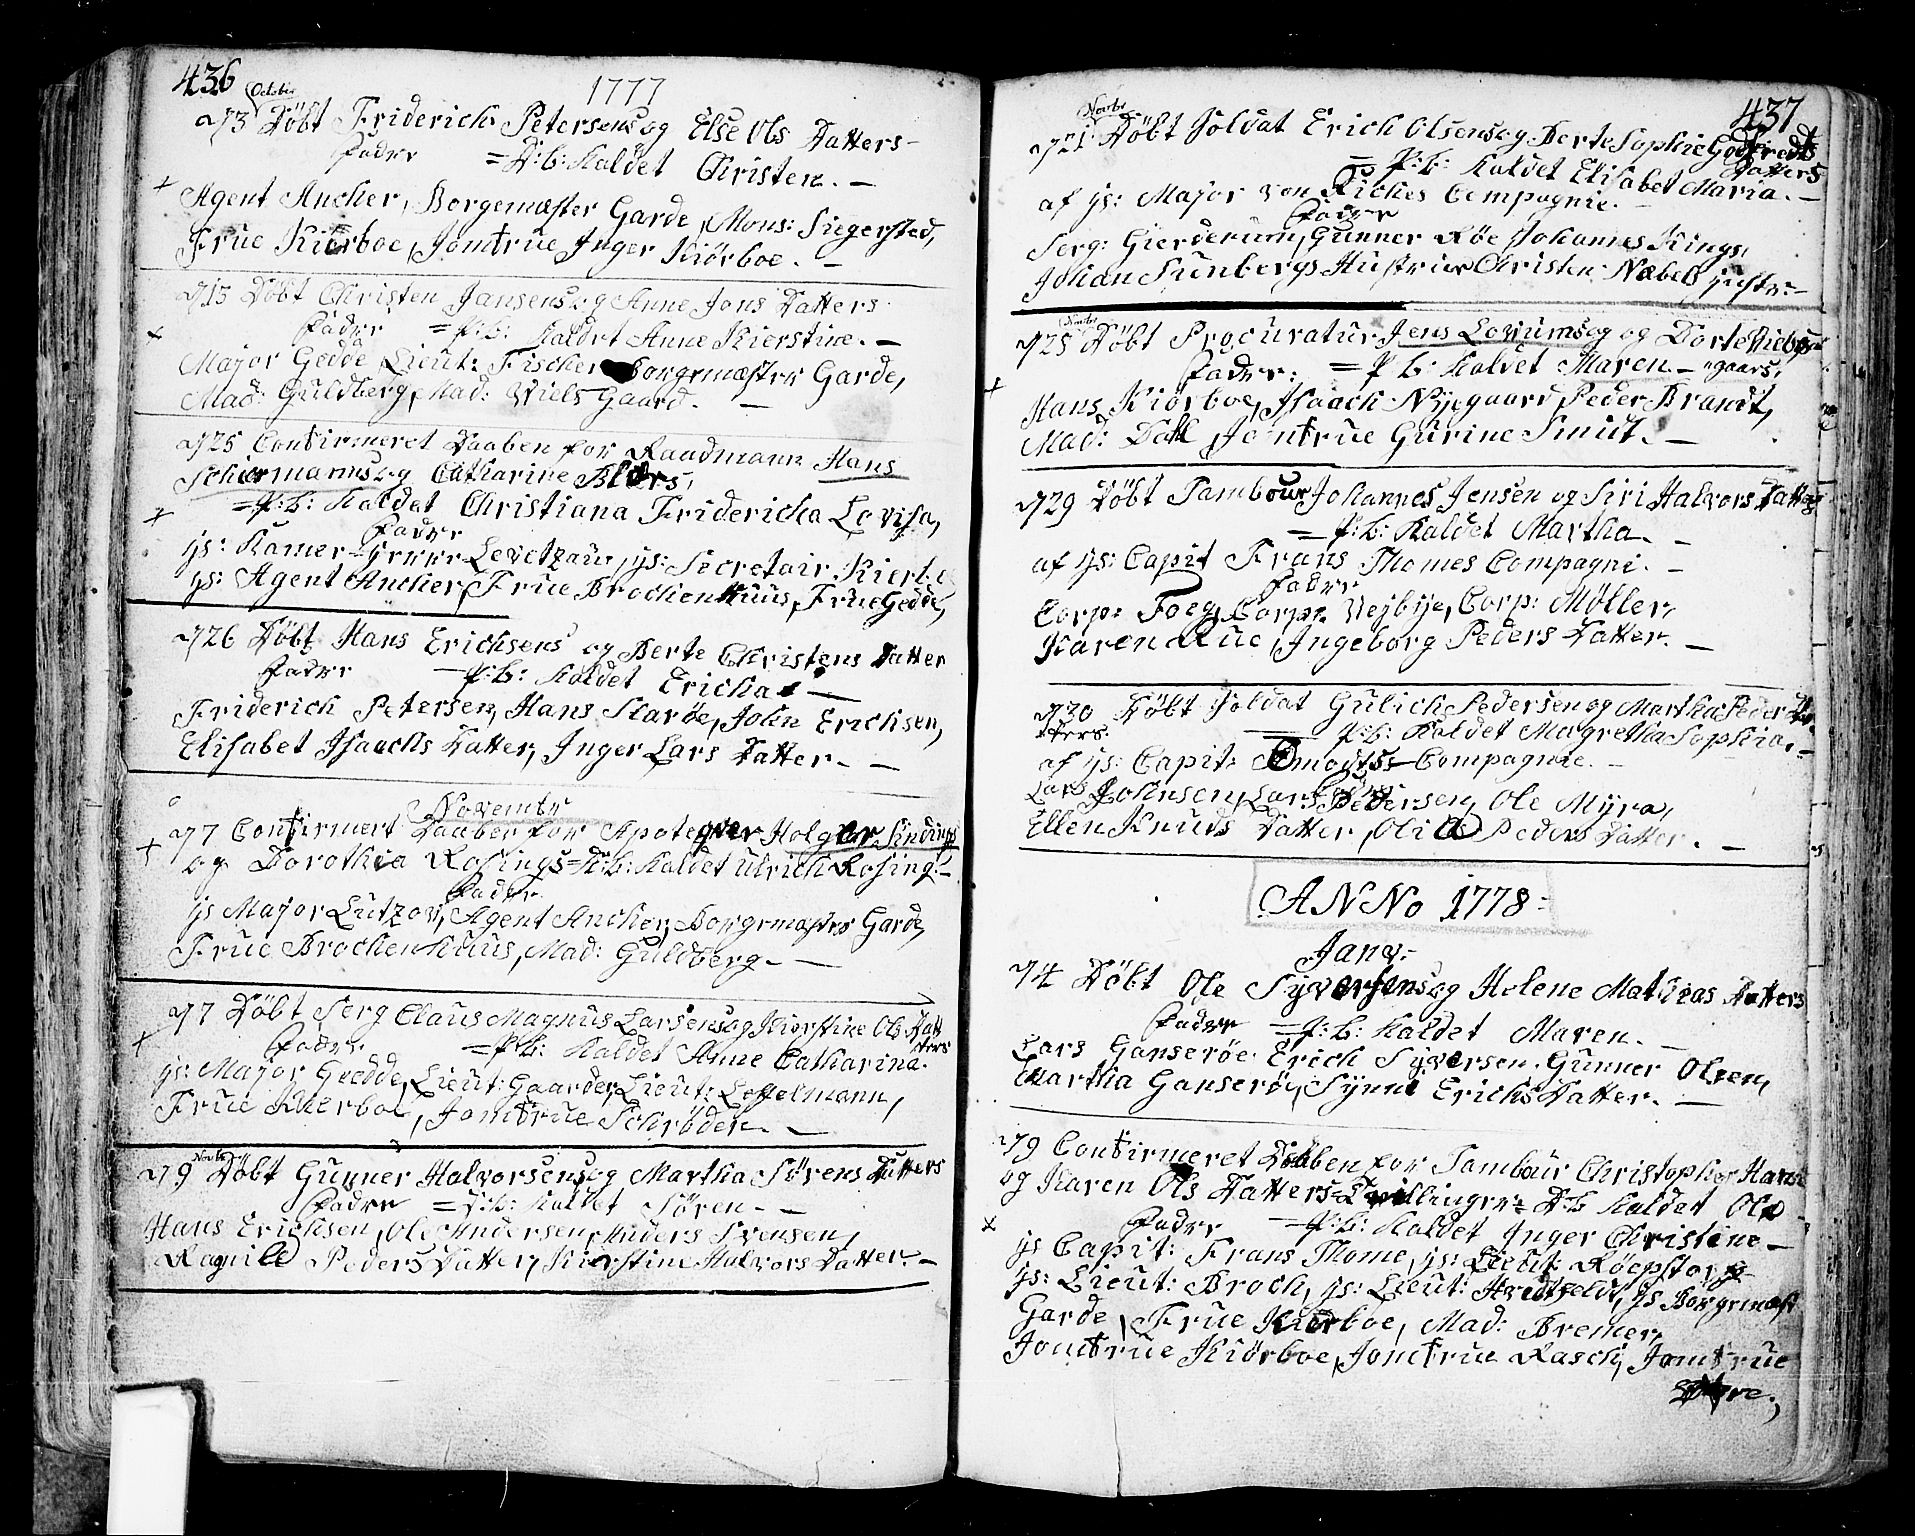 436
1777
October
d 3 Döbt Friderich Petersens og Else Ols Datters
Fadre = P:b: Kaldet Christen. —
+
Agent Ancher, Borgemæster Garde, Mons: Siegersted,
Frue Kiörboe, Jomfrue Inger Kiörboe. —
d 15 Döbt Christen Jansens og Anne Jons Datters
Fadre = P:b: Kaldet Anne Kierstine. —
+
Major Gedde Lieut: Fischer Borgemæster Garde,
Mad: Guldberg, Mad: Niels Gaard. —
d 25 Confirmeret Daaben for Raadmann Hans
Schiermanns og Catharine
= P:b: Kaldet Christiana Fridericha Lovisa,
+ Fadre
Hs: Kamer-Herre Levetzau, Hs: Secretair Kierboe
Hs: Agent Ancher, Frue Brockenhuus, Frue Gedde,
d 26 Döbt Hans Erichsens og Berte Christens Datter
Fadre — P:b: Kaldet Ericha —
Friderich Petersen, Hans Skaröe, John Erichsen,
Elisabet Isaachs Datter, Inger Lars Datter. —
Novembr
d 7 Confirmert Daaben for Apoteqver Holger Sindings
+
og Dorothea Rosings = P:b: Kaldet Ulrich Rosing. —
Fadre
Hs Major Lutzov, Agent Ancher, Borgemæster Garde,
Frue Brochenhuus, Mad: Guldberg. —
d 7 Döbt Serg Claus Magnus Larsens og Kierstine Ols Datt
ters
+ Fadre = P:b: Kaldet Anne Catharina.
Hs: Major Gedde, Lieut: Gaarder, Lieut: Loffelmann,
Frue Kierboe, Jomfrue Schröder. —
Novbr
d 9 Döbt Gunner Halvorsens og Martha Sörens Datters
Fadre = P:b: Kaldet Sören. —
Hans Erichsen, Ole Andersen, Anders Svensen,
Ragnild Peders Datter, Kierstine Halvors Datter. —
437
Novbr
d 21 Döbt Soldat Erich Olsens og Berte Sophie Godfreds
Datters
= P:b: Kaldet Elisabet Maria. —
af Hs: Major von Riches Compagnie.
Fadre
Serg: Gierderum, Gunner Röe, Johannes Kings,
Johan Sunbergs Hustrue Christen Næbels Hustr: —
Novbr
d 25 Döbt Procuratur Jens Lovumsog og Dorte Niels
gaars,
Fadre: = P b: Kaldet Maren. —
+
Hans Kiörboe, Isaach Nyegaard, Peder Brandt,
Mad: Dahl, Jomfrue Gurine Smidt. —
d 29 Döbt Tambour Johannes Jensen og Siri Halvors Datters
= P:b: Kaldet Martha. —
af Hs: Capit Frans Thomes Compagni. —
Fadre
Corp: Foeg, Corp: Vejbye, Corp: Möller,
Karen Rue, Ingeborg Peders Datter. —
d 30 Döbt Soldat Gulich Pedersen og Martha Peders Dat
ters.
P:b: Kaldet Magretha Sophia. —
af Hs: Capit: Compagnie. —
Fadre
Lars Johnsen, Lars Pedersen, Ole Myra,
Ellen Knuds Datter, Olia Peders Datter. —
ANNo 1778
Janv:
d 4 Döbt Ole Syversens og Helene Mathias Datters
Fadre = P:b: Kaldet Maren. —
Lars Ganseröe Erich Syversen. Gunner Olsen,
Martha Ganseröe, Synne Erichs Datter. —
d 9 Confirmeret Daaben for Tambour Christopher Hans
og Karen Ols Datters Tvillinger = P:b Kaldet Ole
+ Fadre = P:b: Kaldet Inger Christine —
Hs Capit: Frans Thome, Hs: Lieut:
Hs: Lieut: Broch, Hs: Lieut: Hvidtfeldt, Hs Borgemæst
Garde, Frue Kierboe, Mad: Bremer,
Jomfrue Kiörboe, Jomfrue Rasch, Jomfrue